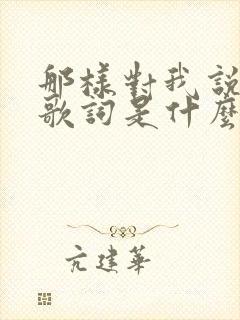 那樣對我說
歌詞是什麼
亢建華